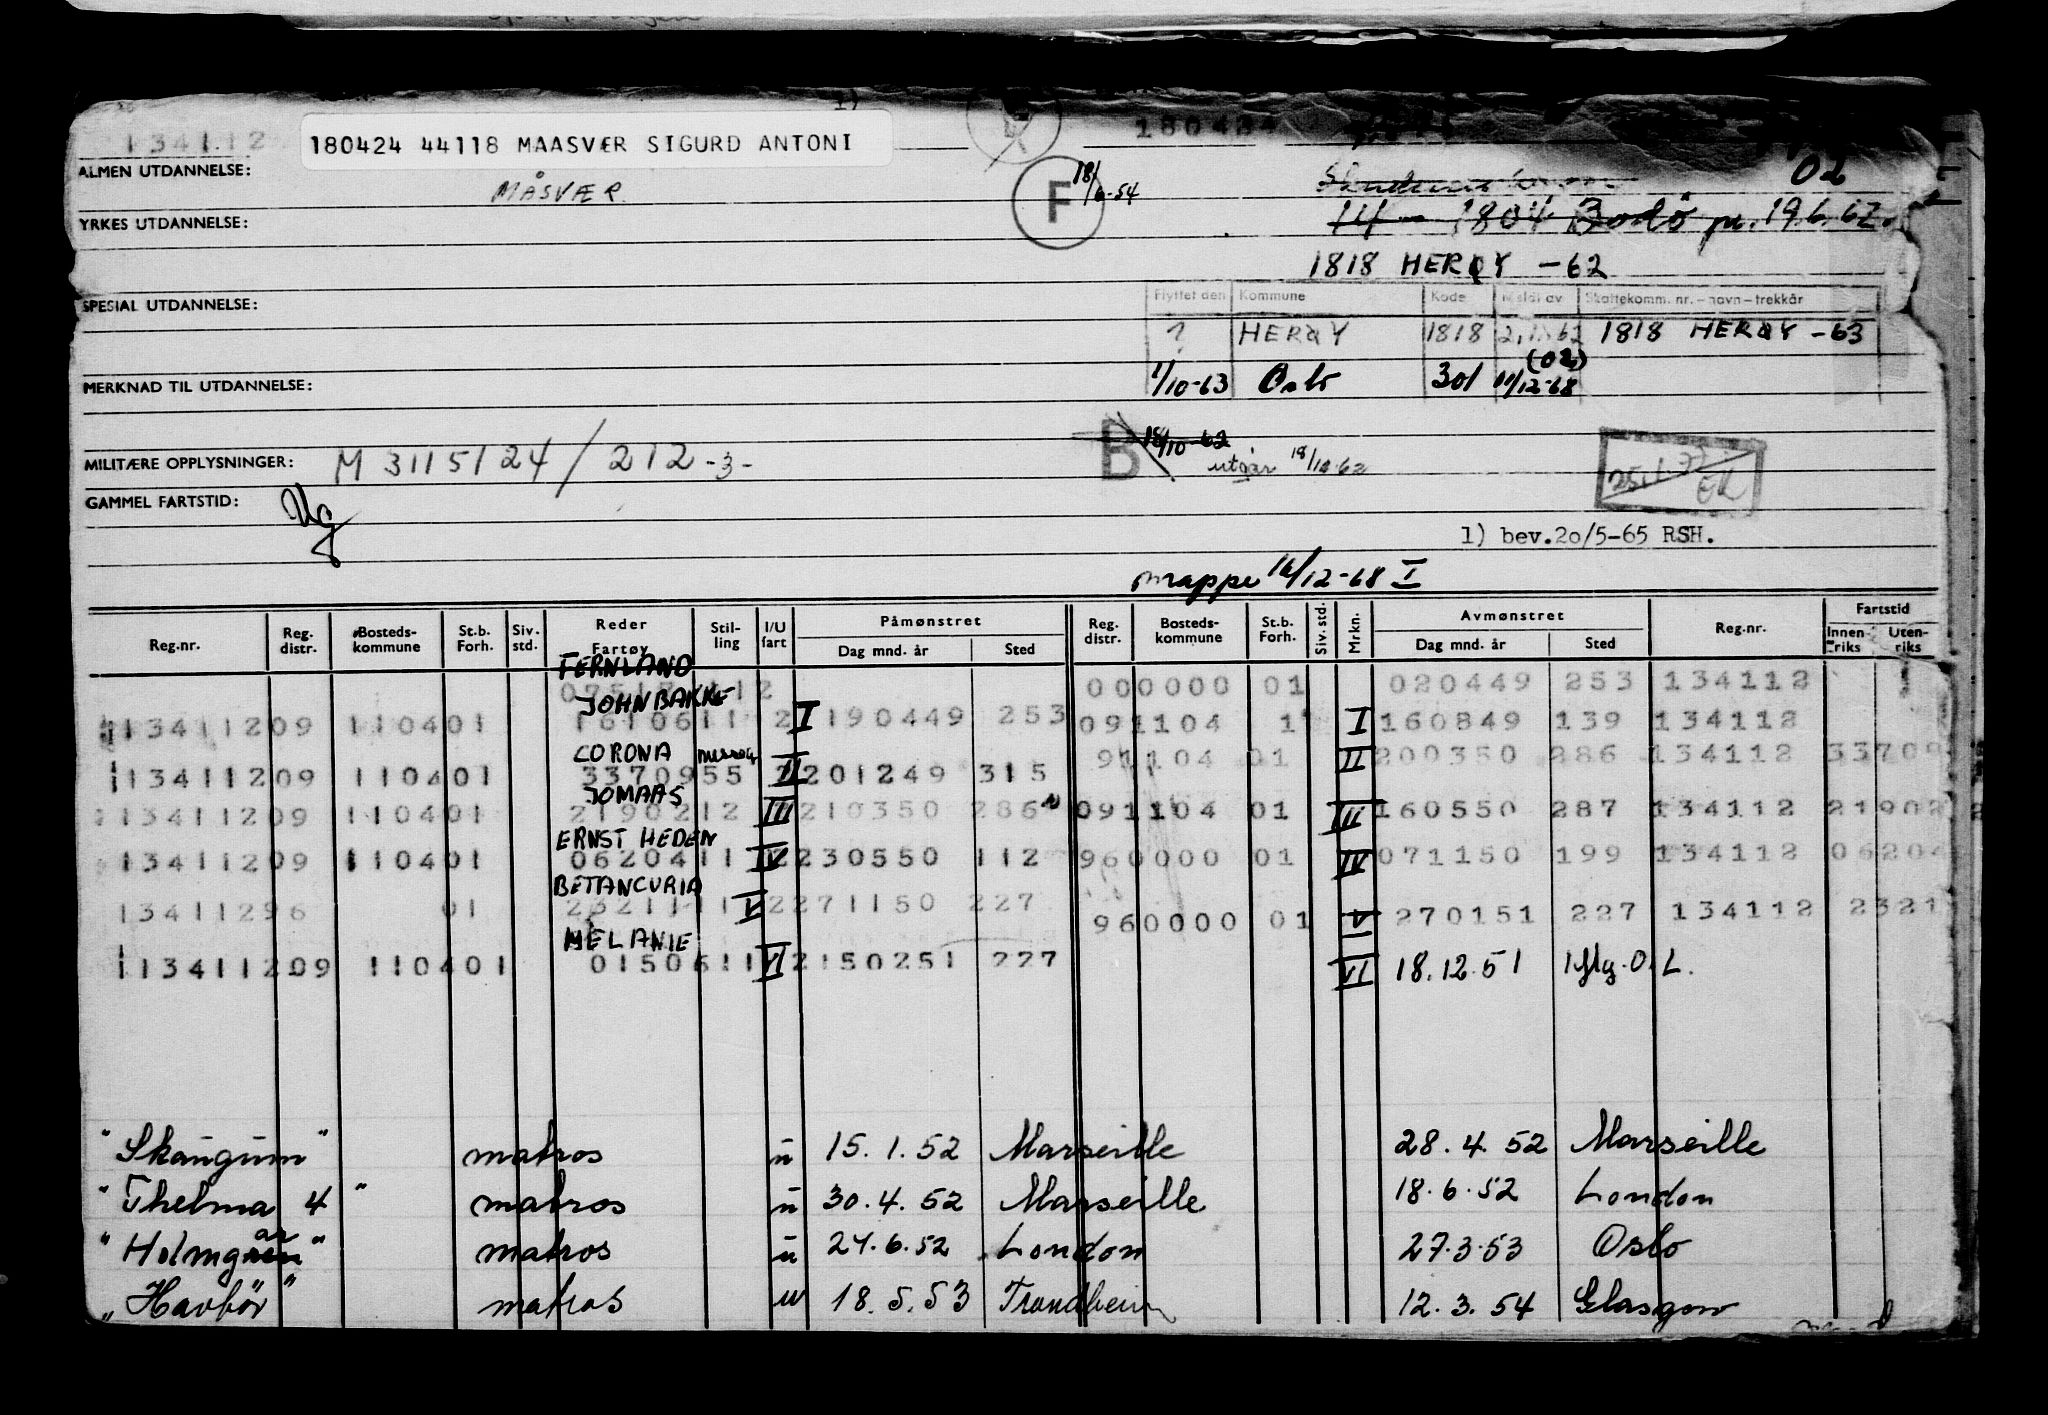 134112
180424 44118 MAASVÆR SIGURD ANTONI
180424
ALMEN UTDANNELSE:
MÅSVÆR
F 18/6-54
02
YRKES UTDANNELSE:
1804 Bodö pr. 19.6.62.
1818 HERØY -62
SPESIAL UTDANNELSE:
Flyttet den Kommune Kode Meldt av Skattekomm. nr. – navn – trekkår
? HERØY 1818 1818 HERØY -63
MERKNAD TIL UTDANNELSE:
1/10-63 Oslo 301 11/12-68 (02)
MILITÆRE OPPLYSNINGER: M 3115124/212 -3-
B 18/10-62 utgår 18/10-62
GAMMEL FARTSTID:
1) bev.20/5-65 RSH.
mappe 16/12-68 I
Reg.nr. Reg. distr. Bosteds- kommune St.b. Forh. Siv. std. Reder Fartøy Stil- ling I/U fart Påmønstret Dag mnd. år Sted Reg. distr. Bosteds- kommune St.b. Forh. Siv. std. Mrkn. Avmønstret Dag mnd. år Sted Reg.nr. Fartstid Innen- riks Uten- riks
FERNLAND
000000 01 020449 253 134112
JOHN BAKKE
113411209 110401 1610611 2 I 190449 253 091104 1 I 160849 139 134112
CORONA
113411209 110401 3370955 2 II 201249 315 91104 01 II 200350 286 134112 33709
JOMAAS
113411209 110401 2190212 III 210350 286 091104 01 III 160550 287 134112 21902
ERNST HEDEN
13411209 110401 0620411 2 IV 230550 112 960000 01 IV 071150 199 134112 06204
BETANCURIA
13411296 01 2321111 V 2271150 227 960000 01 V 270151 227 134112 2321
MELANIE
113411209 110401 0150611 VI 2150251 227 VI 18.12.51
"Skaugum" matros u 15.1.52 Marseille 28.4.52 Marseille
"Thelma 4" matros u 30.4.52 Marseille 18.6.52 London
"Holmgar" matros u 27.6.52 London 27.3.53 Oslo
"Havbör" matros u 18.5.53 Trondheim 12.3.54 Glasgow